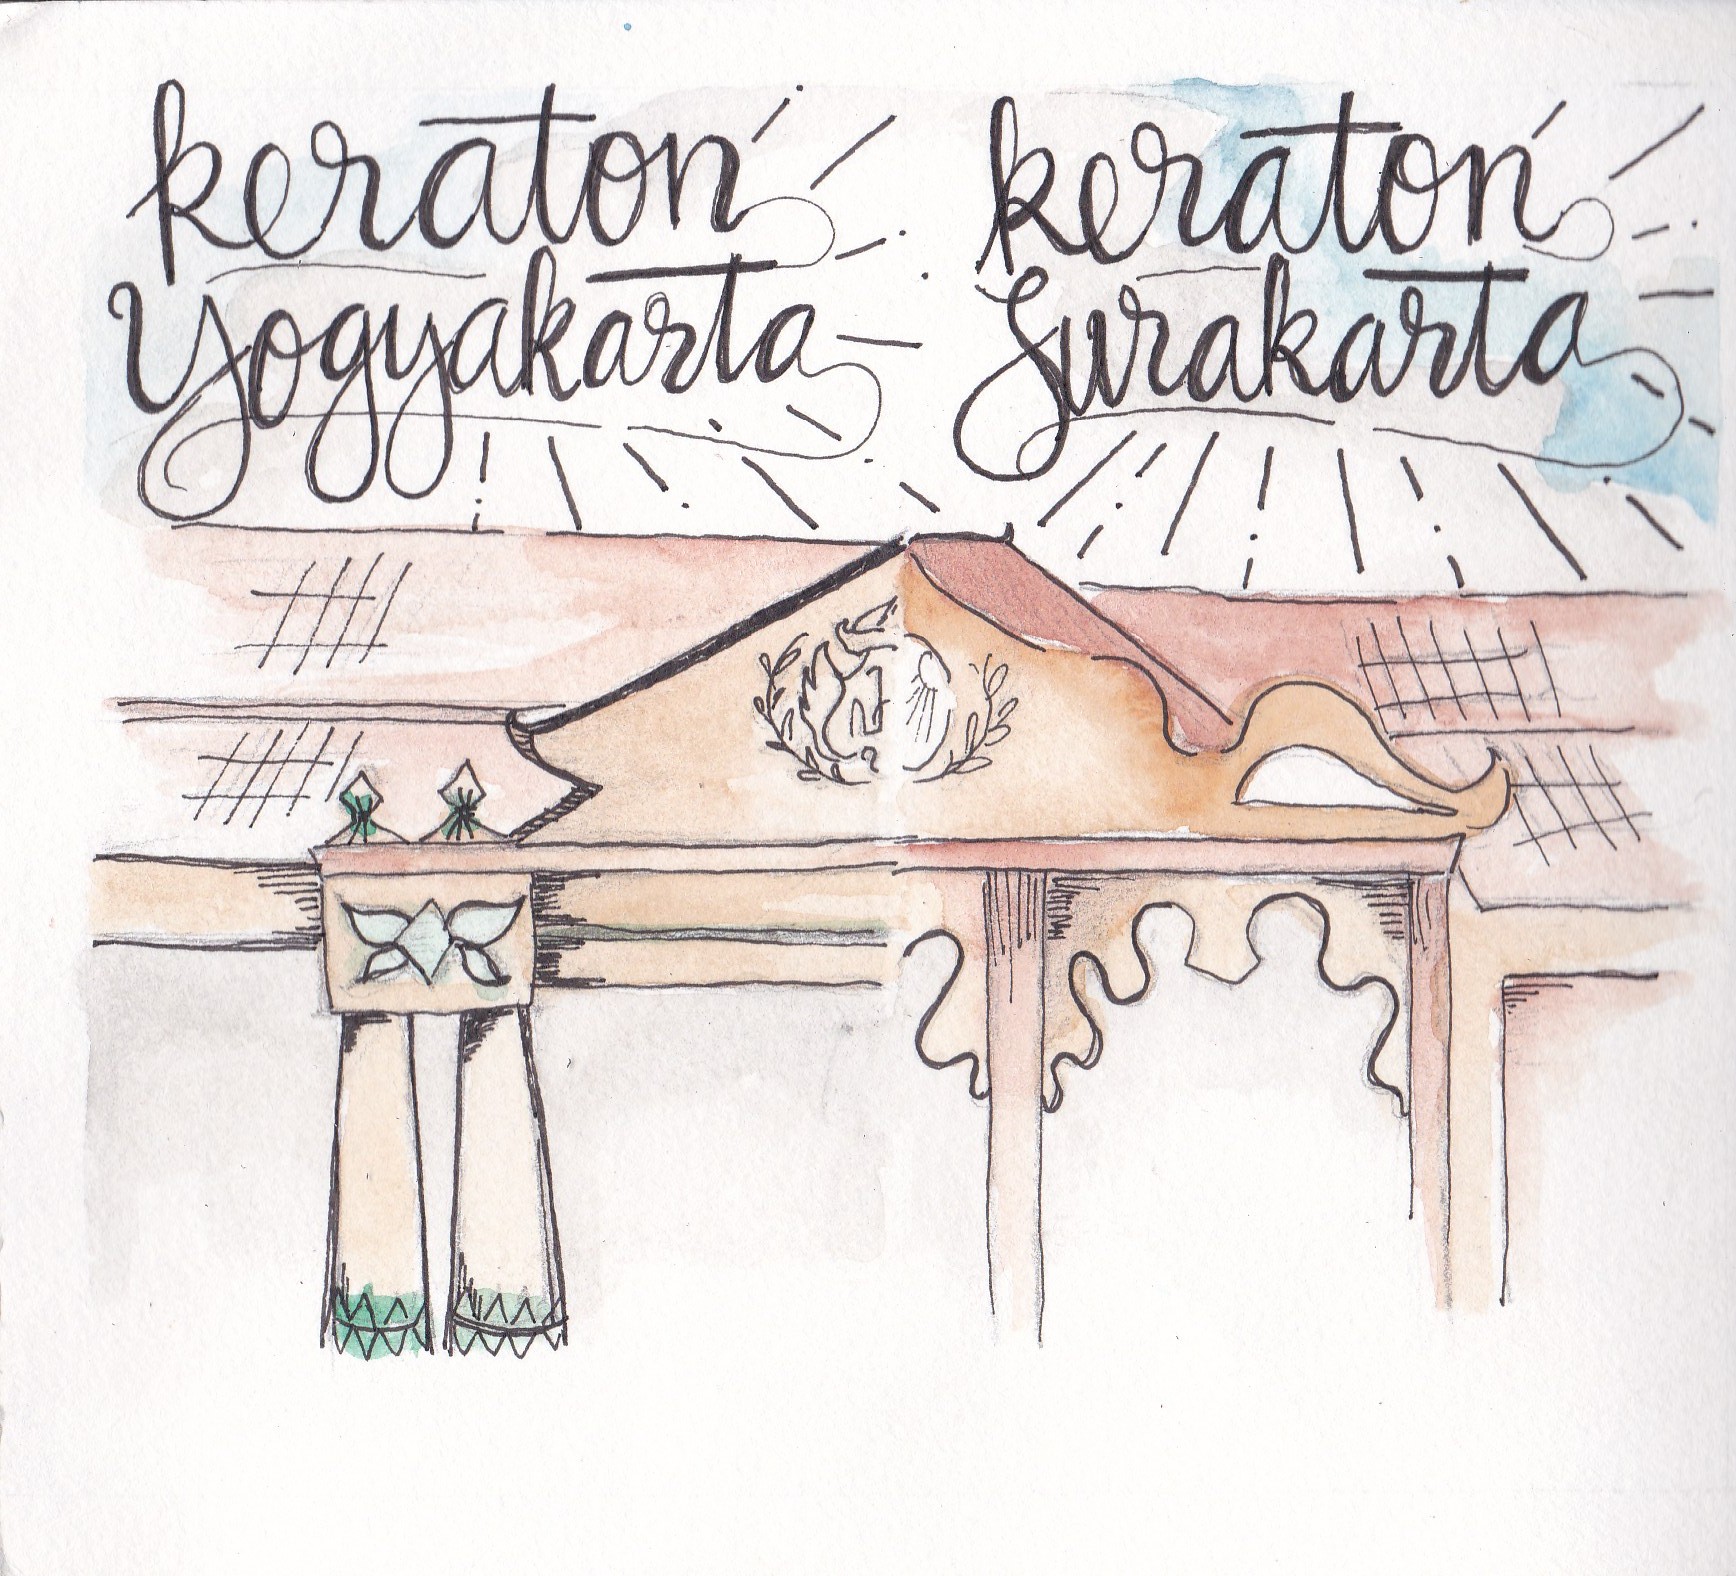 keraton
Yogyakarta
keraton
Surakarta